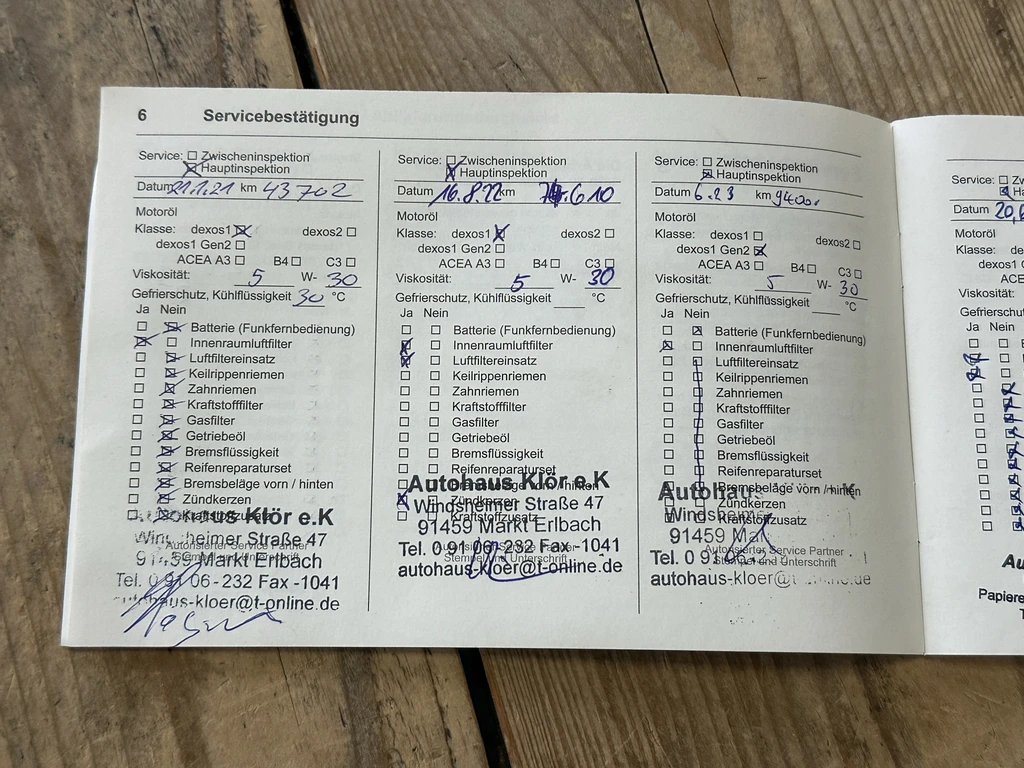 6 Servicebestätigung
Service: Zwischeninspektion
Hauptinspektion
Datum 21.1.21 km 43702
Motoröl
Klasse: dexos1 dexos2
dexos1 Gen2
ACEA A3 B4 C3
Viskosität: 5 W- 30
Gefrierschutz, Kühlflüssigkeit 30 °C
Ja Nein
Batterie (Funkfernbedienung)
Innenraumluftfilter
Luftfiltereinsatz
Keilrippenriemen
Zahnriemen
Kraftstofffilter
Gasfilter
Getriebeöl
Bremsflüssigkeit
Reifenreparaturset
Bremsbeläge vorn / hinten
Zündkerzen
Kraftstoffzusatz
Autohaus Klör e.K
Windsheimer Straße 47
Autorisierter Service Partner
Stempel und Unterschrift
91459 Markt Erlbach
Tel. 0 91 06 - 232 Fax -1041
autohaus-kloer@t-online.de
Service: Zwischeninspektion
Hauptinspektion
Datum 16.8.22 km
Motoröl
Klasse: dexos1 dexos2
dexos1 Gen2
ACEA A3 B4 C3
Viskosität: 5 W- 30
Gefrierschutz, Kühlflüssigkeit °C
Ja Nein
Batterie (Funkfernbedienung)
Innenraumluftfilter
Luftfiltereinsatz
Keilrippenriemen
Zahnriemen
Kraftstofffilter
Gasfilter
Getriebeöl
Bremsflüssigkeit
Reifenreparaturset
Bremsbeläge vorn / hinten
Autohaus Klör e.K
Zündkerzen
Windsheimer Straße 47
Kraftstoffzusatz
91459 Markt Erlbach
Autorisierter Service Partner
Tel. 0 91 06 - 232 Fax -1041
Stempel und Unterschrift
autohaus-kloer@t-online.de
Service: Zwischeninspektion
Hauptinspektion
Datum 6.23 km
Motoröl
Klasse: dexos1 dexos2
dexos1 Gen2
ACEA A3 B4 C3
Viskosität: 5 W- 30
Gefrierschutz, Kühlflüssigkeit °C
Ja Nein
Batterie (Funkfernbedienung)
Innenraumluftfilter
Luftfiltereinsatz
Keilrippenriemen
Zahnriemen
Kraftstofffilter
Gasfilter
Getriebeöl
Bremsflüssigkeit
Reifenreparaturset
Bremsbeläge vorn / hinten
Autohaus
Zündkerzen
Windsheimer
Kraftstoffzusatz
91459
Autorisierter Service Partner
Tel. 0 91 06
Stempel und Unterschrift
autohaus-kloer@t-online.de
Service:
Datum
Motoröl
Klasse:
Viskosität:
Ja Nein